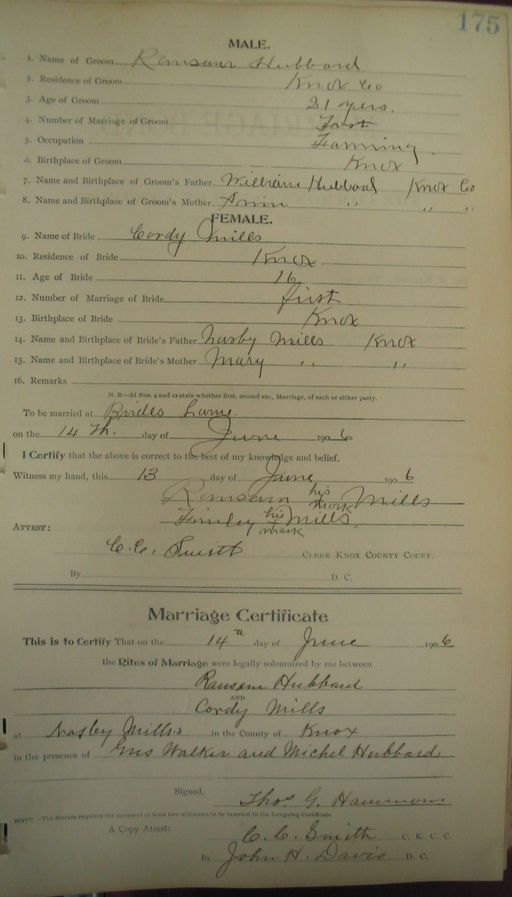 175
MALE.
1. Name of Groom Ransom Hubbard
2. Residence of Groom Knox Co
3. Age of Groom 21 yers.
4. Number of Marriage of Groom First
5. Occupation Farming
6. Birthplace of Groom Knox
7. Name and Birthplace of Groom's Father William Hubbard Knox Co
8. Name and Birthplace of Groom's Mother Ann " " "
FEMALE.
9. Name of Bride Cordy Mills
10. Residence of Bride Knox
11. Age of Bride 16
12. Number of Marriage of Bride first
13. Birthplace of Bride Knox
14. Name and Birthplace of Bride's Father Nasby Mills Knox
15. Name and Birthplace of Bride's Mother Mary " "
16. Remarks
N. B.—At Nos. 4 and 12 state whether first, second etc., Marriage, of each or either party.
To be married at Brides
on the 14 Th. day of June 1906
I Certify that the above is correct to the best of my knowledge and belief.
Witness my hand, this 13 day of June 1906
Ransom his mark Mills
Finley his mark Mills
ATTEST:
C. C. Smith CLERK KNOX COUNTY COURT.
By D. C.
Marriage Certificate
This is to Certify That on the 14th day of June 1906
the Rites of Marriage were legally solemnized by me between
Ransom Hubbard
AND
Cordy Mills
at Nasby Mills in the County of Knox
in the presence of Gus Walker and Michel Hubbard
Signed, Thos. G. Hammons
NOTE:—The Statute requires the names of at least two witnesses to be inserted in the foregoing Certificate
A Copy Attest: C. C. Smith C. K. C. C.
By John H. Davis D. C.